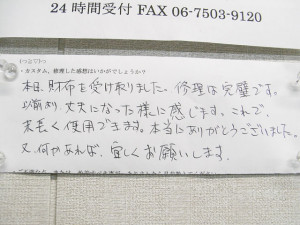 24時間受付 FAX 06-7503-9120
・カスタム、修理した感想はいかがでしょうか?
本日、財布を受け取りました。修理は完璧です。
以前より丈夫になった様に感じます。これで、
末長く使用できます。本当にありがとうございました。
又、何かあれば、宜しくお願いします。